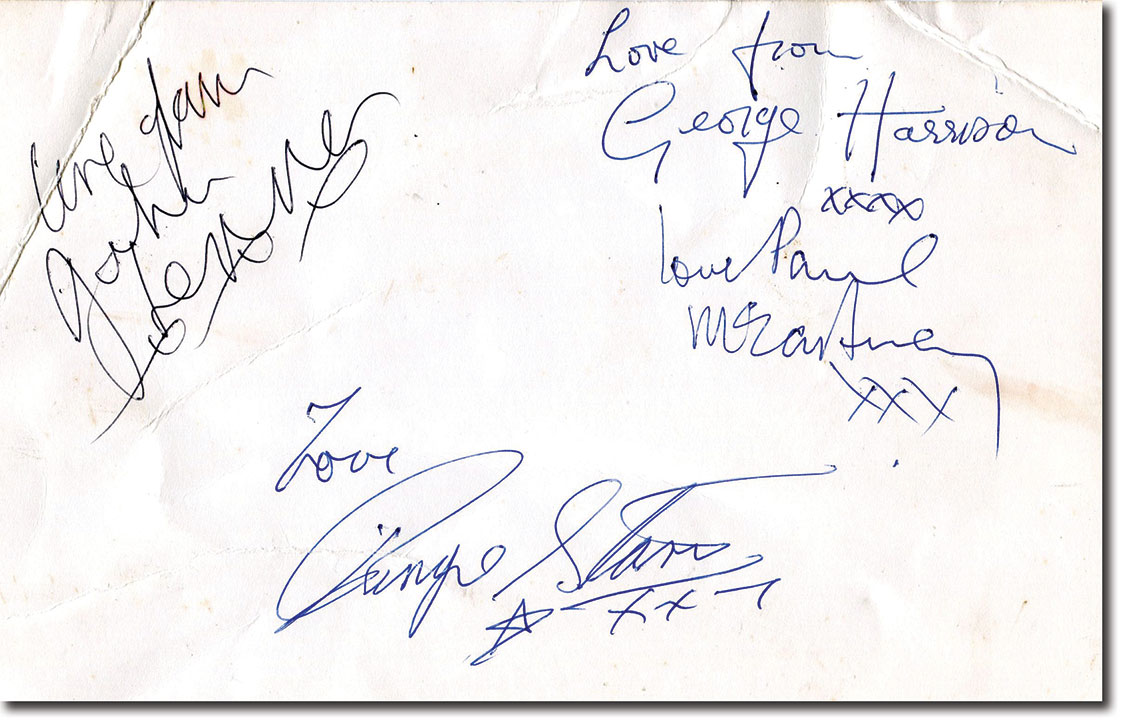 love from
John
Lennon
Love from
George Harrison
xxxx
love Paul
McCartney
xxx
Love
Ringo Starr
xx